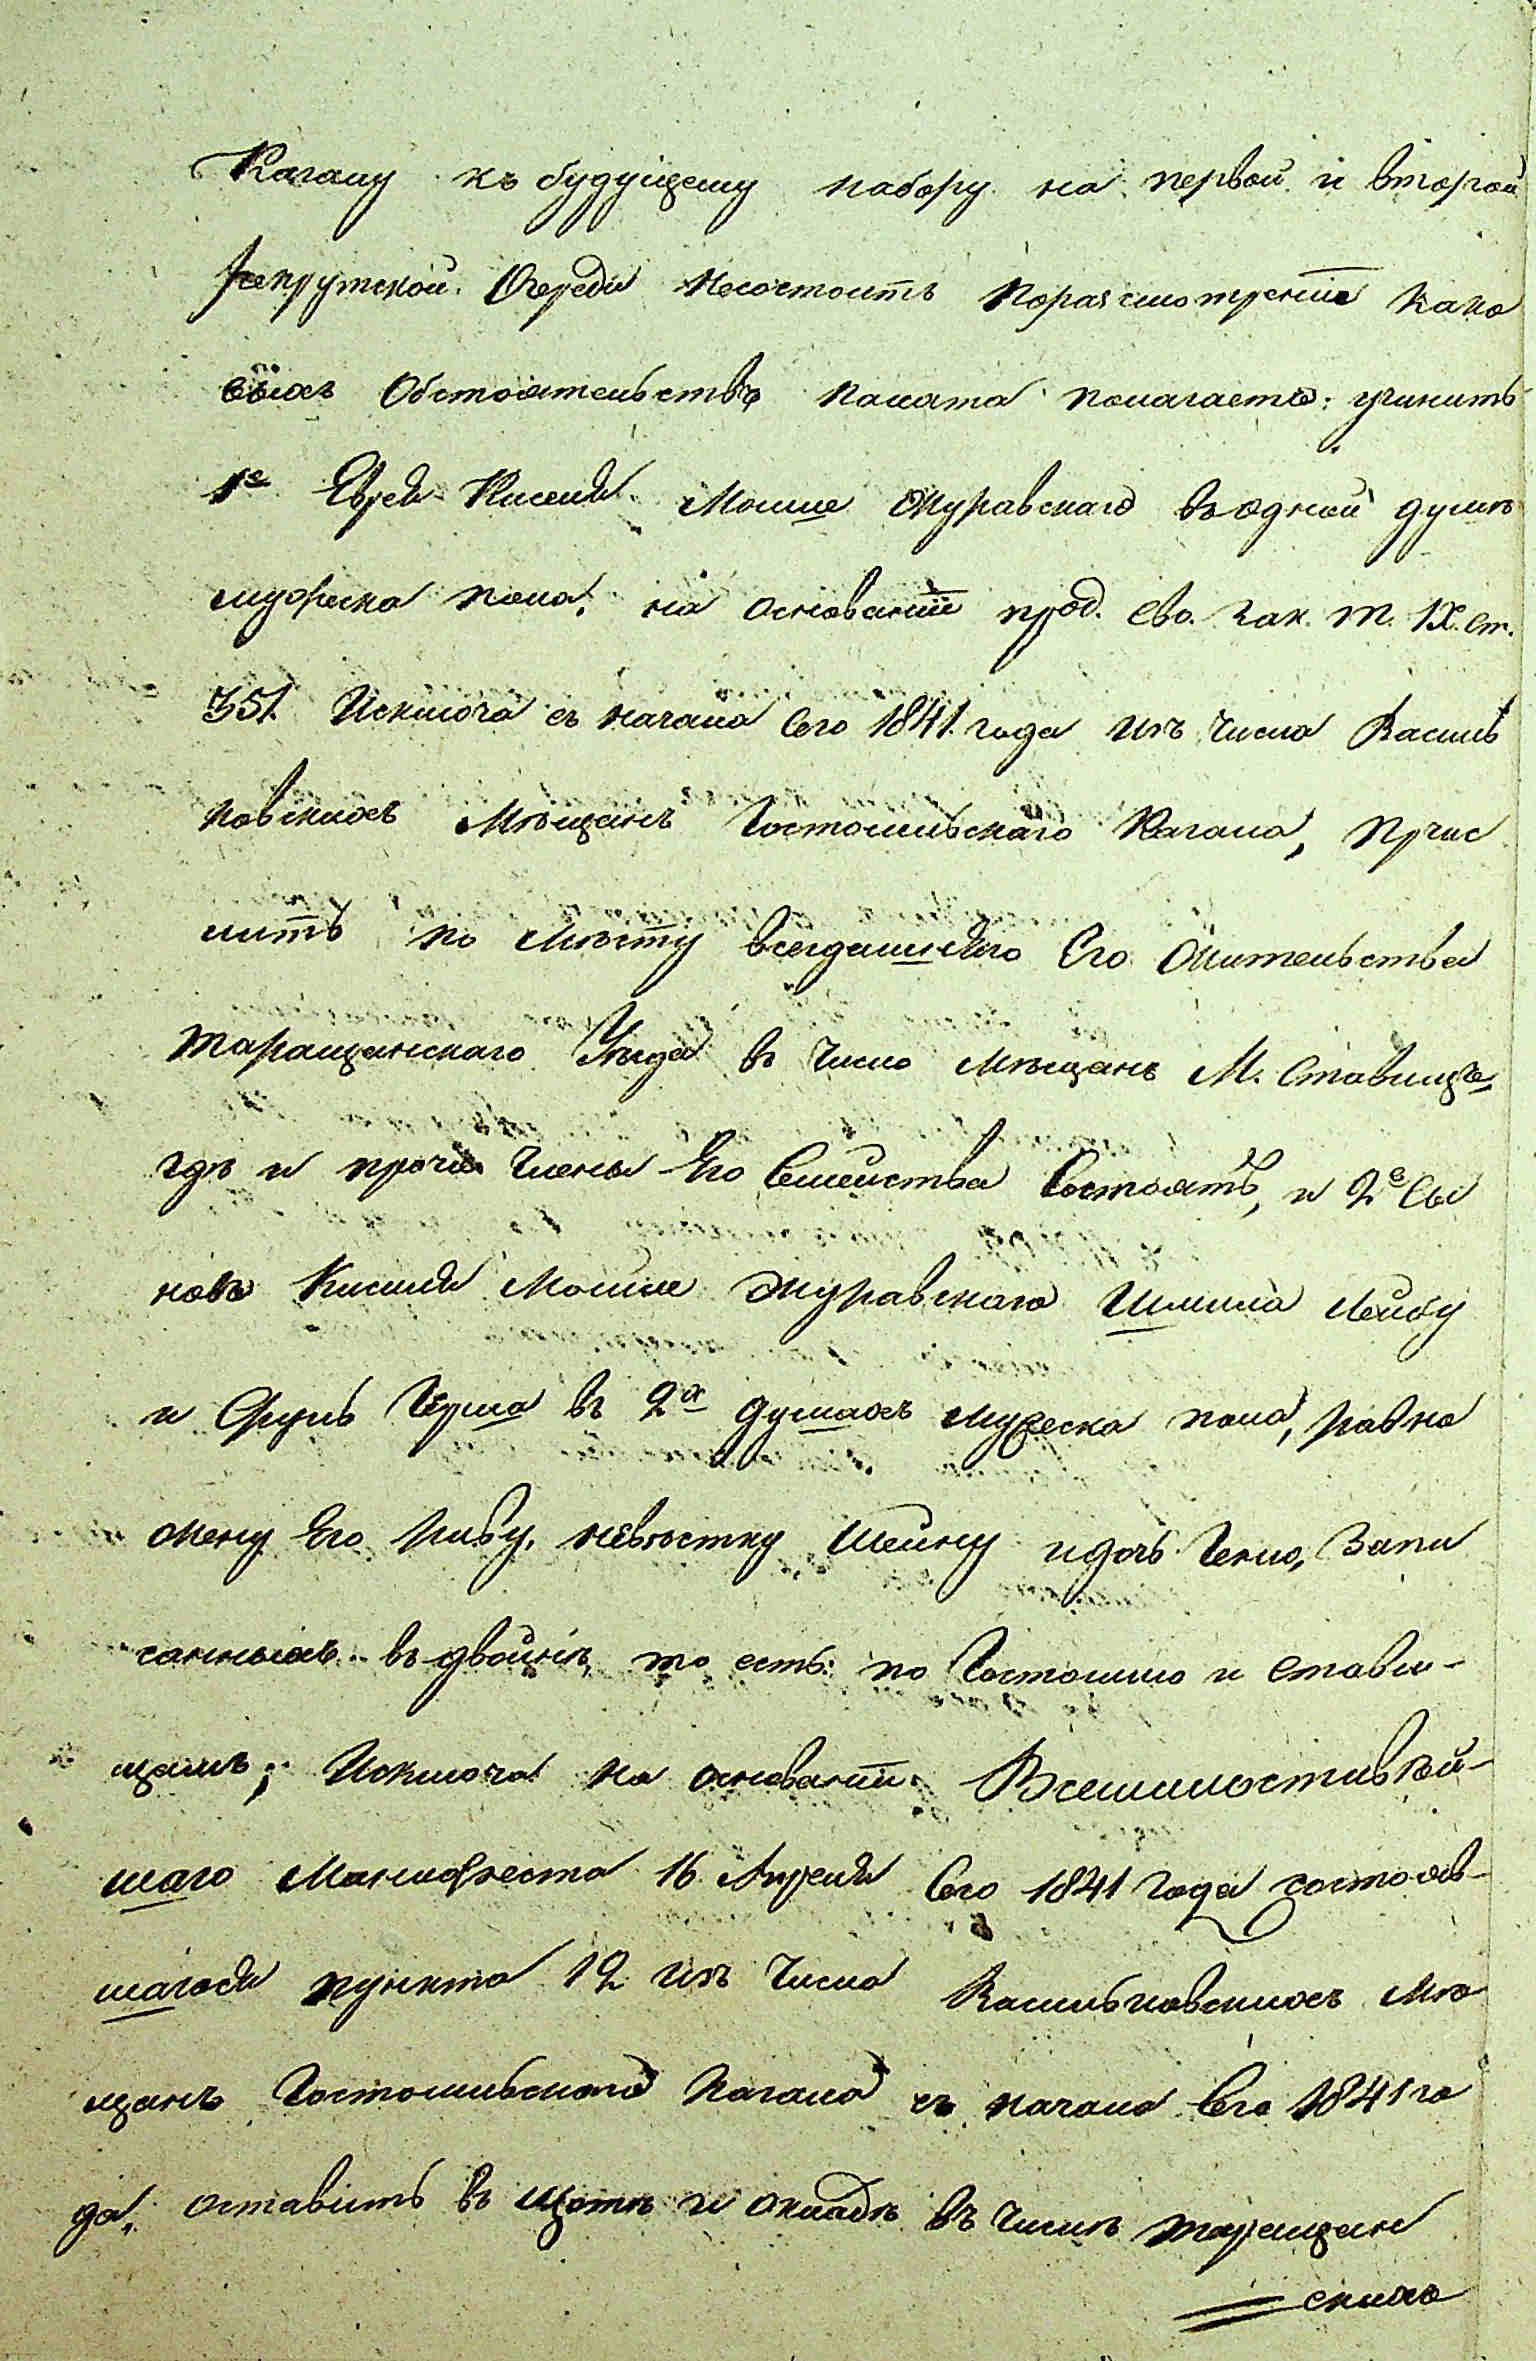 Кагалу къ будущему набору на первой и второй
рекрутской Очереди несостоитъ Поразсмотренію како
выхъ Обстоятельствъ палата полагаетъ: учинить
1е Еврея Киселя Мошке Журавскаго въ одной душѣ
мужеска пола, на основаніи прод. Сво. Зак. Т. IX. ст.
351. Исключа съ начала сего 1841. года изъ числа Василь
ковскихъ Мѣщанъ Гостомльскаго Кагала, причис
лить по мѣсту всегдашняго Его Жительства
Таращанскаго Уѣзда въ число мѣщанъ М. Ставищъ
гдѣ и прочіе члены Его Семейства Состоятъ, и 2е Сы
новъ Киселя Мошке Журавскаго Шмила Лейбу
и Сруль Герша въ 2х душахъ мужеска пола, равно
жену Его Риву, невѣстку Шейну и дочь Геню, Запи
санныхъ въ двойнѣ, то есть: по Гостомлю и Стави-
щамъ; Исключа на основаніи Всемилостивѣй-
шаго Манифеста 16 Апреля Сего 1841 года состояв-
шагося пункта 12 изъ числа Васильковскихъ мѣ
щанъ Гостомльскаго Кагала съ начала Сего 1841 го
да, оставить въ щотѣ и окладѣ въ числѣ Таращан
скихъ